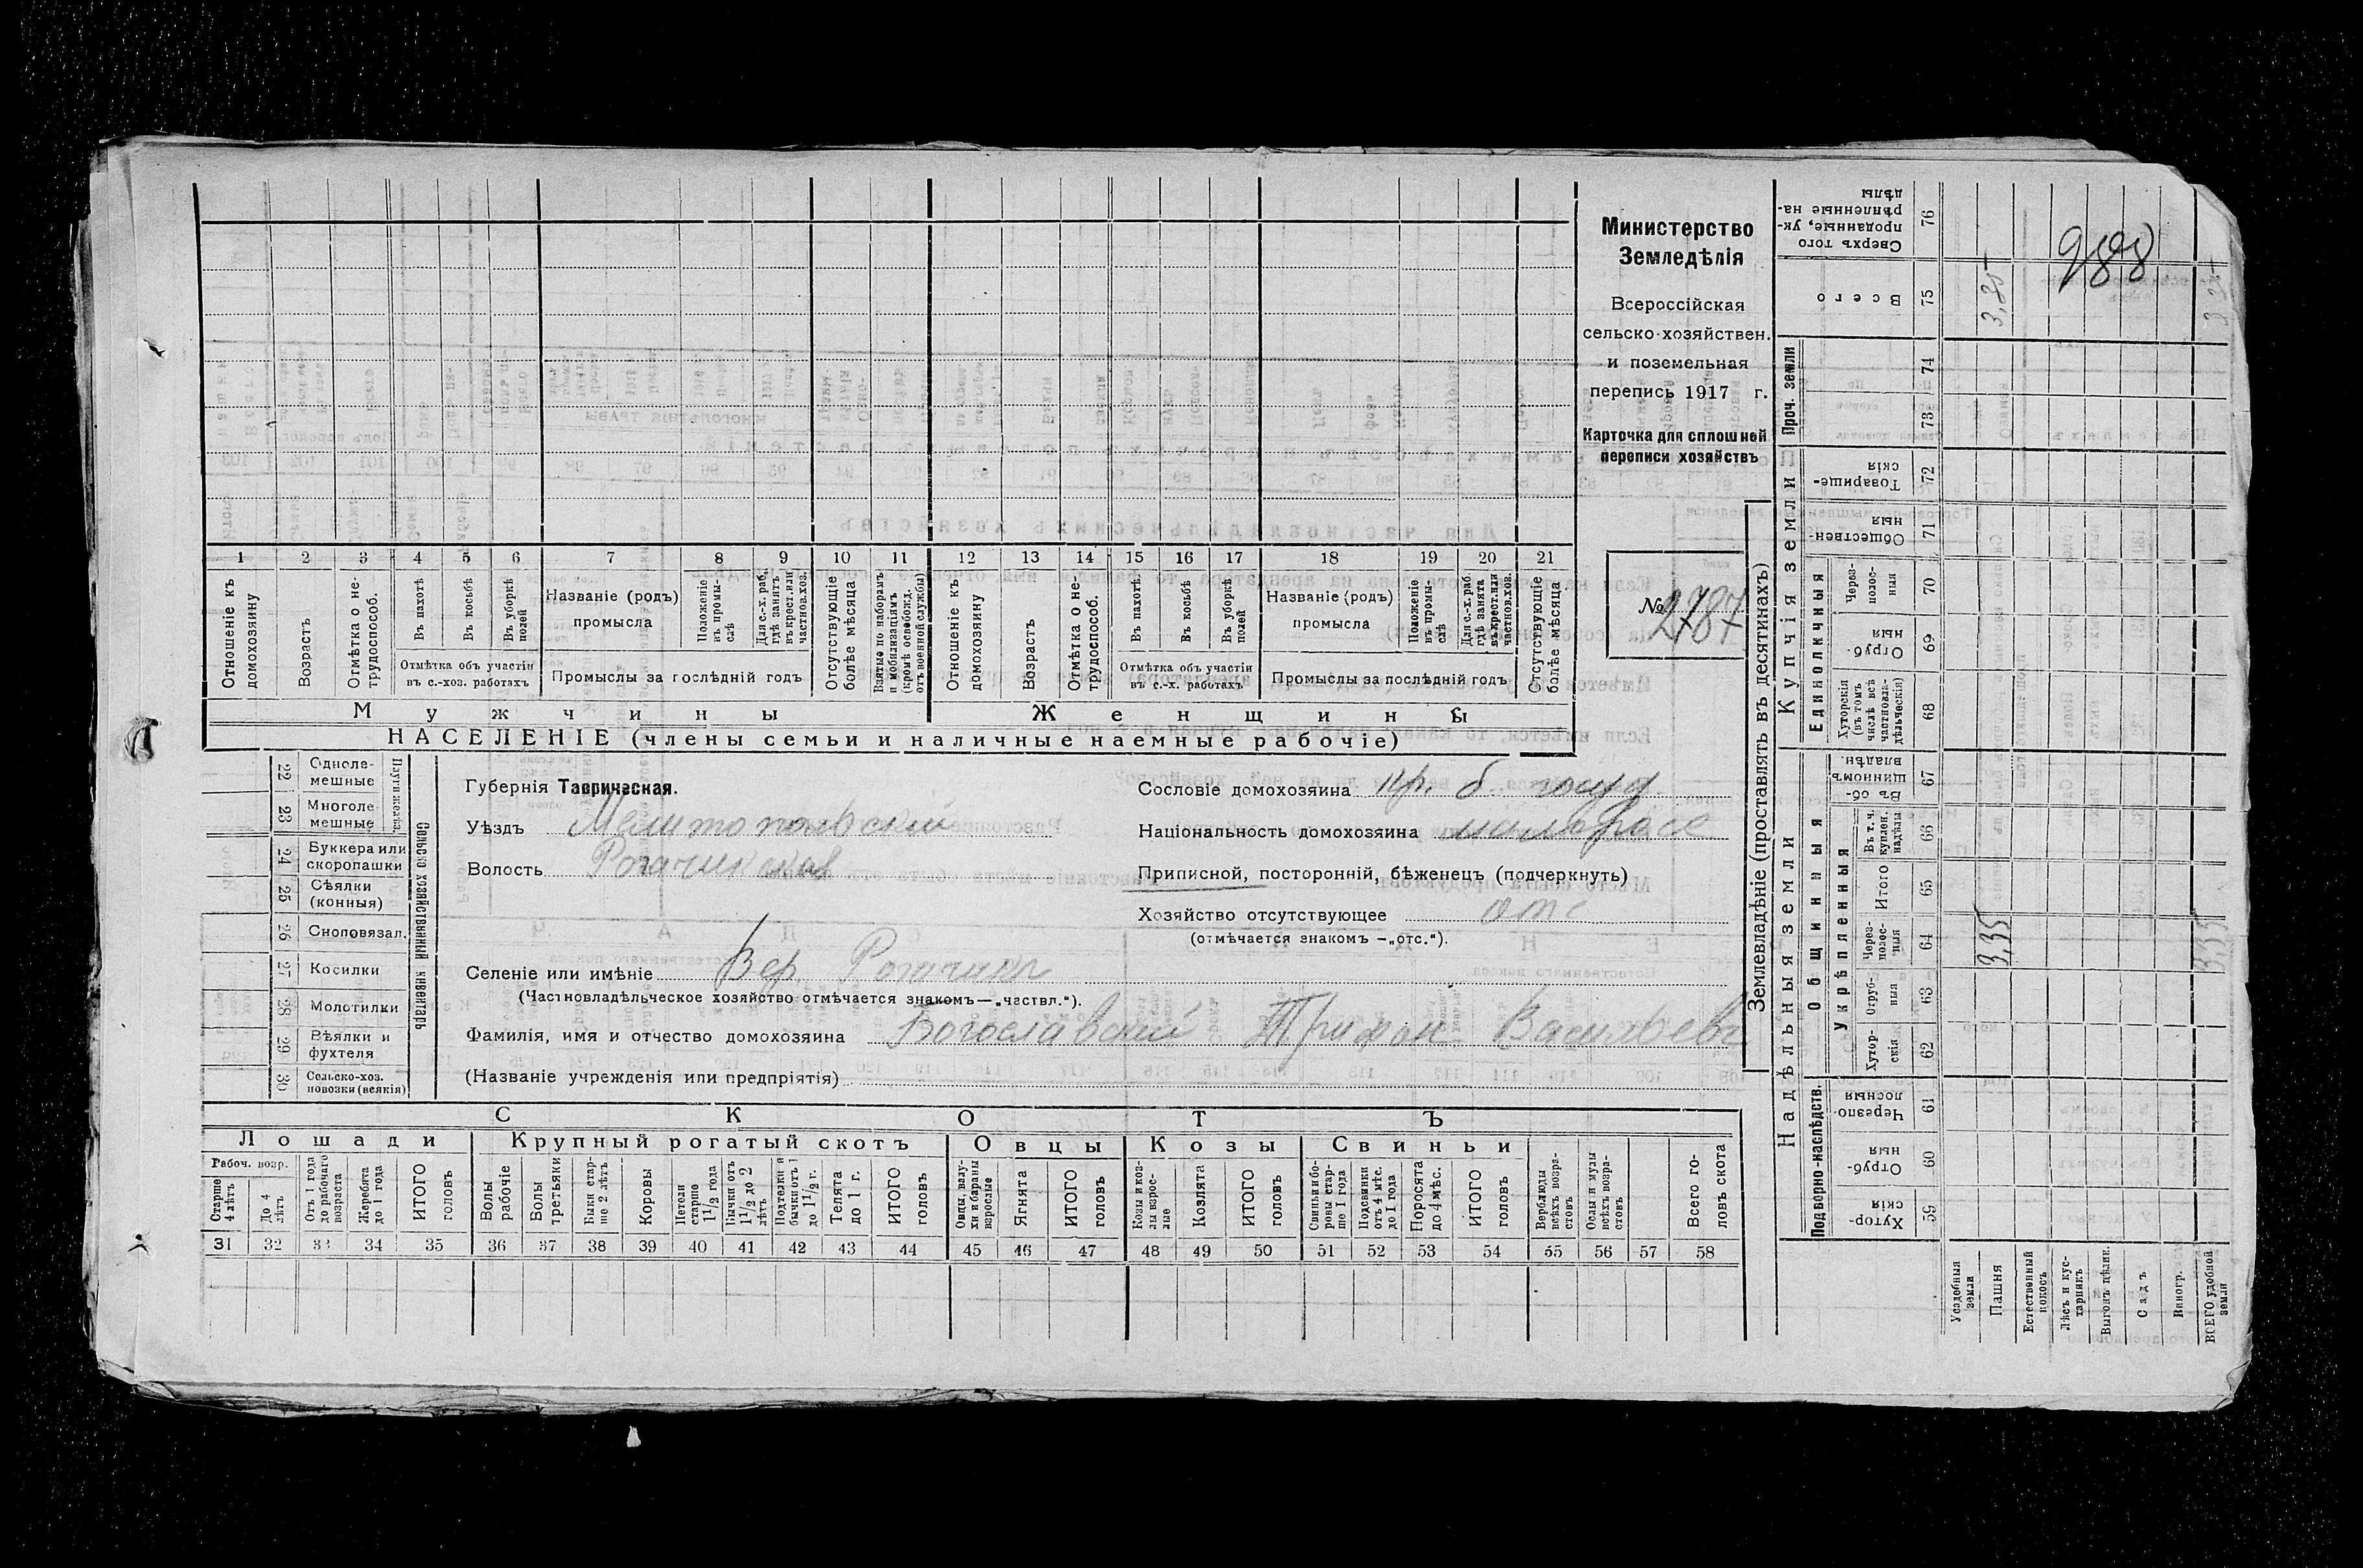 Министерство
Земледѣлія
Всероссійская
сельско-хозяйствен.
и поземельная
перепись 1917 г.
Карточка для сплошной
переписи хозяйствъ
№ 2787
988
1 2 3 4 5 6 7 8 9 10 11 12 13 14 15 16 17 18 19 20 21
Отношеніе къ домохозяину
Возрастъ
Отмѣтка о не-трудоспособ.
Въ пахотѣ
Въ косьбѣ
Въ уборкѣ полей
Отмѣтка объ участіи въ с.-хоз. работахъ
Названіе (родъ) промысла
Положеніе въ промы-слѣ
Для с.-х. раб. гдѣ занятъ въ крест. или частнов. хоз.
Промыслы за послѣдній годъ
Отсутствующіе болѣе мѣсяца
Взятые по наборамъ и мобилизаціямъ (кромѣ освобожд. отъ военной службы)
Отношеніе къ домохозяину
Возрастъ
Отмѣтка о не-трудоспособ.
Въ пахотѣ
Въ косьбѣ
Въ уборкѣ полей
Отмѣтка объ участіи въ с.-х. работахъ
Названіе (родъ) промысла
Положеніе въ промы-слѣ
Для с.-х. раб. гдѣ занята въ крест. или частнов. хоз.
Промыслы за послѣдній годъ
Отсутствующіе болѣе мѣсяца
Мужчины Женщины
НАСЕЛЕНІЕ (члены семьи и наличные наемные рабочіе)
22 Одноле-мешные
23 Многоле-мешные
24 Буккера или скоропашки
25 Сѣялки (конныя)
26 Сноповязал.
27 Косилки
28 Молотилки
29 Вѣялки и фухтеля
30 Сельско-хоз. повозки (всякія)
Сельско хозяйственный инвентарь
Губернія Таврическая.
Уѣздъ Мелитопольский
Волость Рогачикская
Сословіе домохозяина кр. б. госуд
Національность домохозяина малоросс
Приписной, посторонній, бѣженецъ (подчеркнуть)
Хозяйство отсутствующее отс
(отмѣчается знакомъ —„отс.“).
Селеніе или имѣніе Вер. Рогачикъ
(Частновладѣльческое хозяйство отмѣчается знакомъ—„частвл.“).
Фамилія, имя и отчество домохозяина Богославский Трифон Васильевъ
(Названіе учрежденія или предпріятія)
СКОТЪ
Лошади Крупный рогатый скотъ Овцы Козы Свиньи
Рабоч. возр.
Старше 4 лѣтъ
До 4 лѣтъ
Отъ 1 года до рабочаго возраста
Жеребята до 1 года
ИТОГО головъ
Волы рабочіе
Волы третьяки
Быки стар-ше 2 лѣтъ
Коровы
Нетели старше 1½ года
Бычки отъ 1½ до 2 лѣтъ
Подтелки и бычки отъ 1 до 1½ г.
Телята до 1 г.
ИТОГО головъ
Овцы, валу-хи и бараны взрослые
Ягнята
ИТОГО головъ
Козы и коз-лы взрос-лые
Козлята
ИТОГО головъ
Свиньи и бо-ровы стар-ше 1 года
Подсвинки отъ 4 мѣс. до 1 года
Поросята до 4 мѣс.
ИТОГО головъ
Верблюды всѣхъ возра-стовъ
Ослы и мулы всѣхъ возра-стовъ
Всего го-ловъ скота
31 32 33 34 35 36 37 38 39 40 41 42 43 44 45 46 47 48 49 50 51 52 53 54 55 56 57 58
Землевладѣніе (проставлять въ десятинахъ)
Надѣльныя земли Купчія земли
Проч. земли
Подворно-наслѣдств.
Общинныя
Укрѣпленныя
Единоличныя
Сверхъ того проданные, ук-рѣпленные на-дѣлы 76
Всего 75 3,35 3 35
74
73
Товарище-скія 72
Обществен-ныя 71
Через-полос-ныя 70
Отруб-ныя 69
Хуторскія (въ томъ числѣ всѣ частновла-дѣльческія) 68
Въ об-щинномъ владѣн. 67
Въ т. ч. куплен. надѣлы 66
Итого 65
Через-полос-ныя 64 3,35 3,35
Отруб-ныя 63
Хутор-скія 62
Черезпо-лосныя 61
Отруб-ныя 60
Хутор-скія 59
Усадебныя земли
Пашня
Естественный покосъ
Лѣсъ и кус-тарникъ
Выгонъ цѣлин.
Садъ
Виногр.
ВСЕГО удобной земли